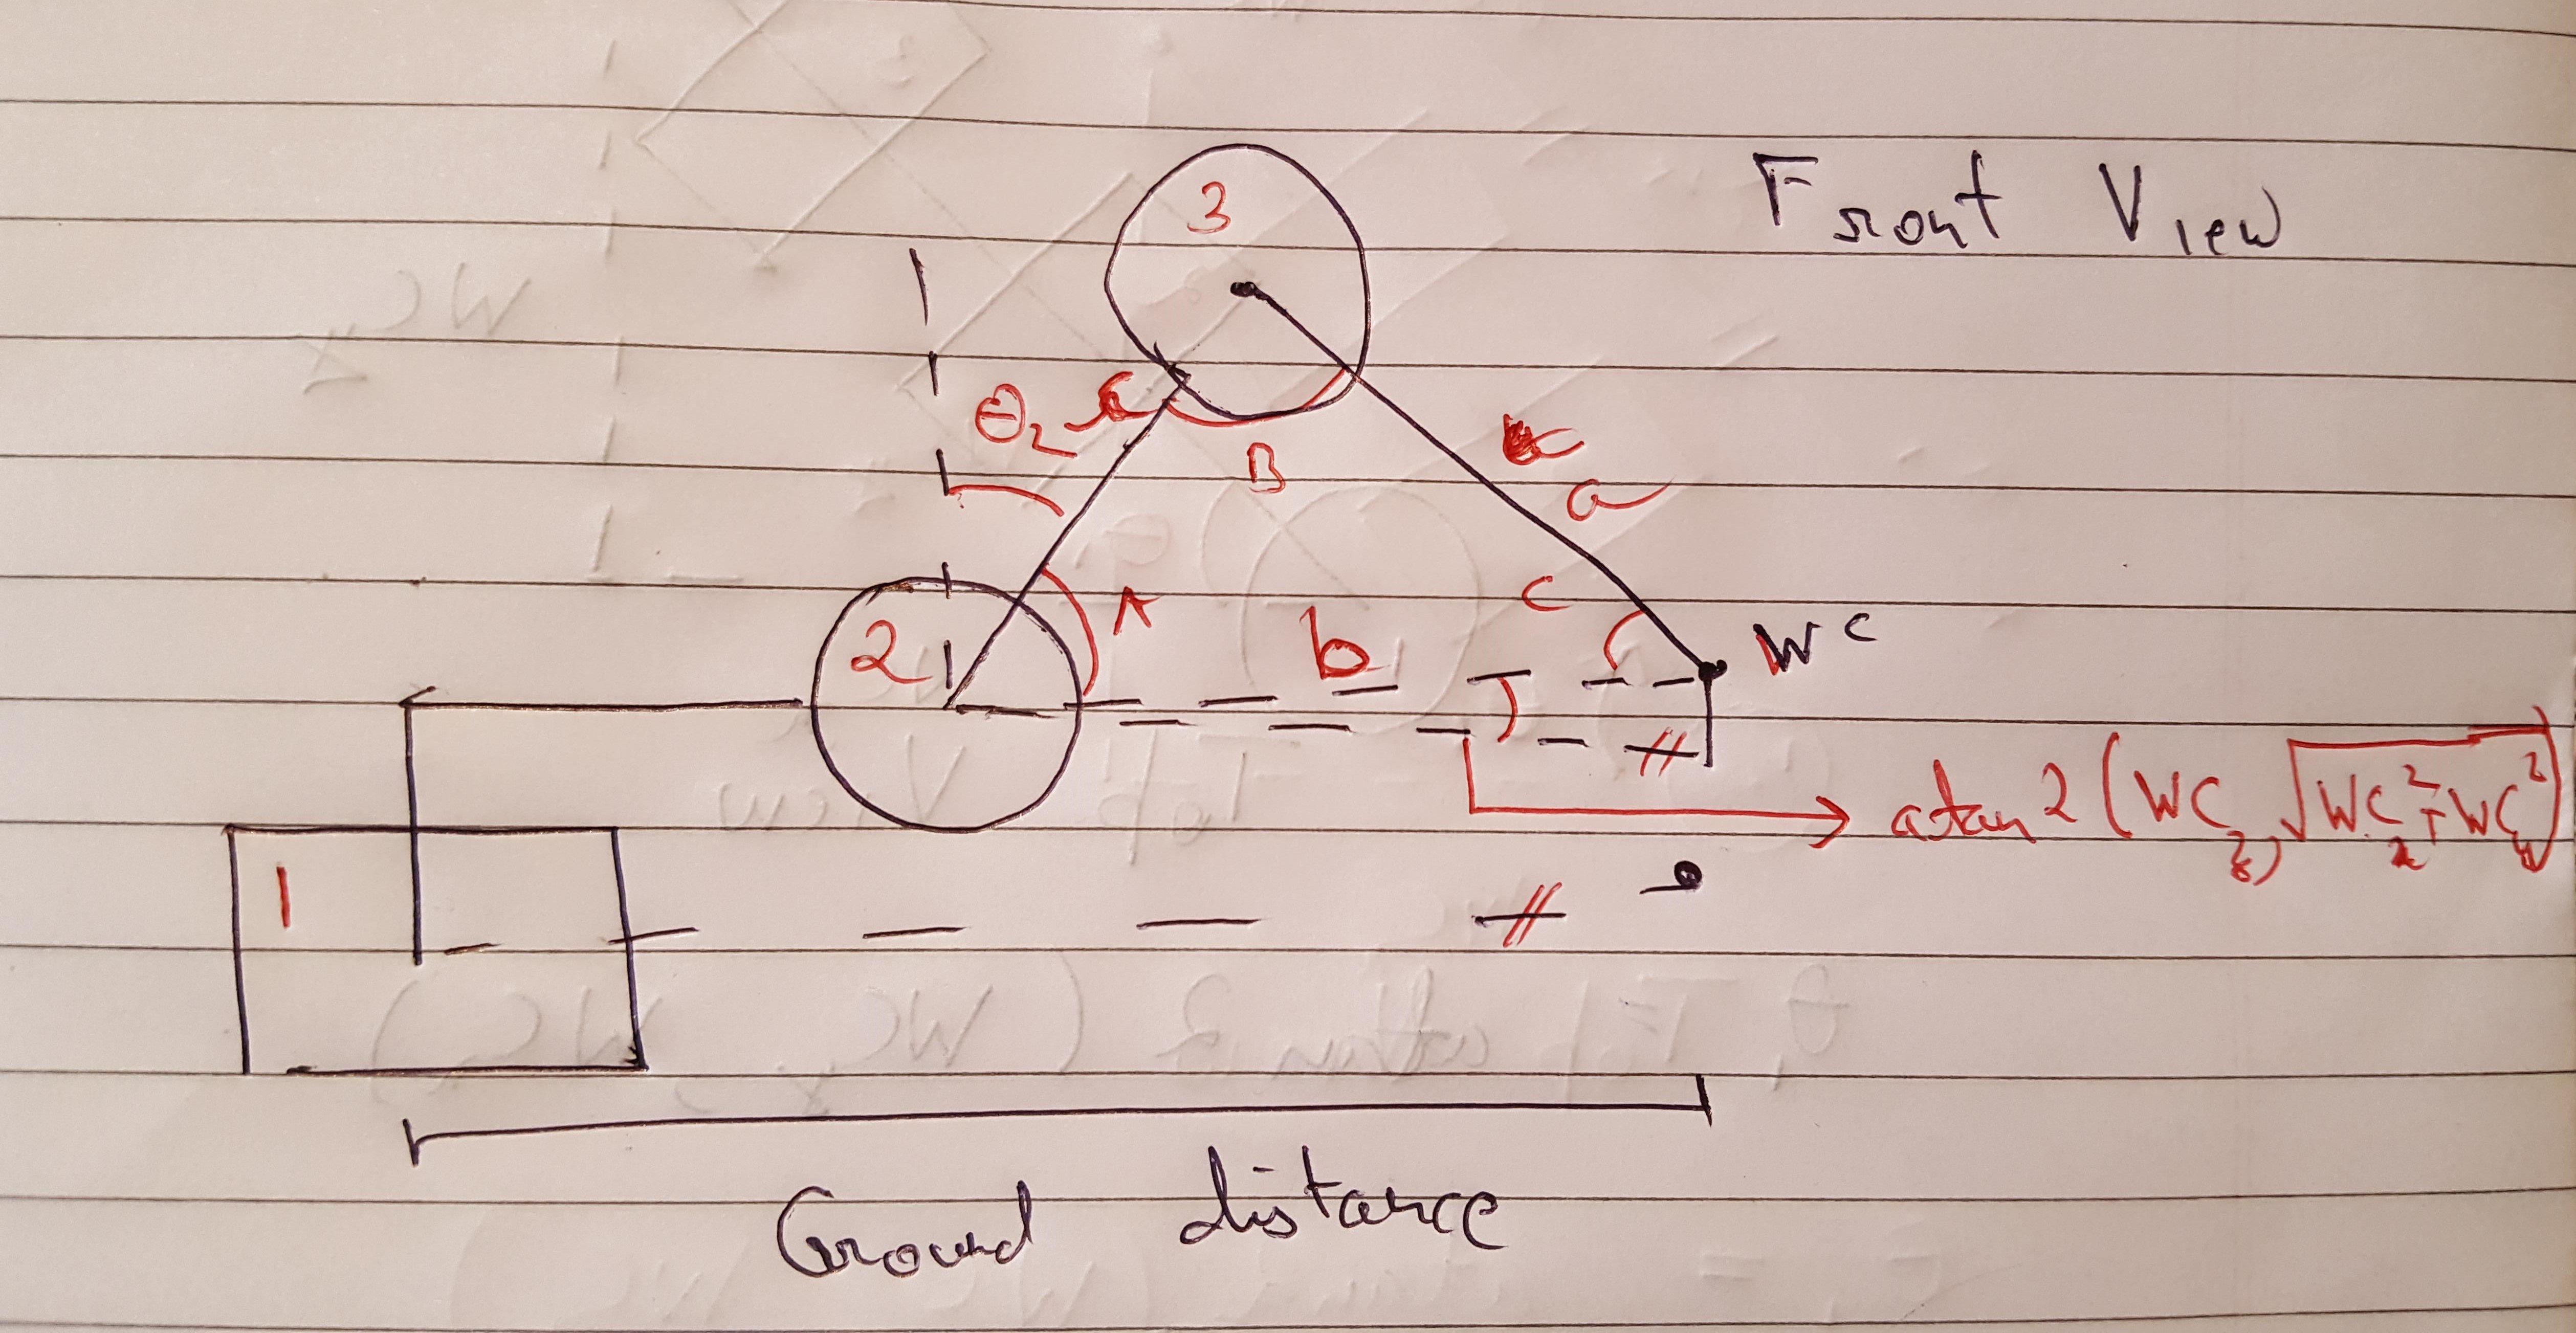 Front View
3
θ2
c
B
a
A
C
2
b
WC
atan2 (WCz, √WCx² + WCy²)
1
Ground distance